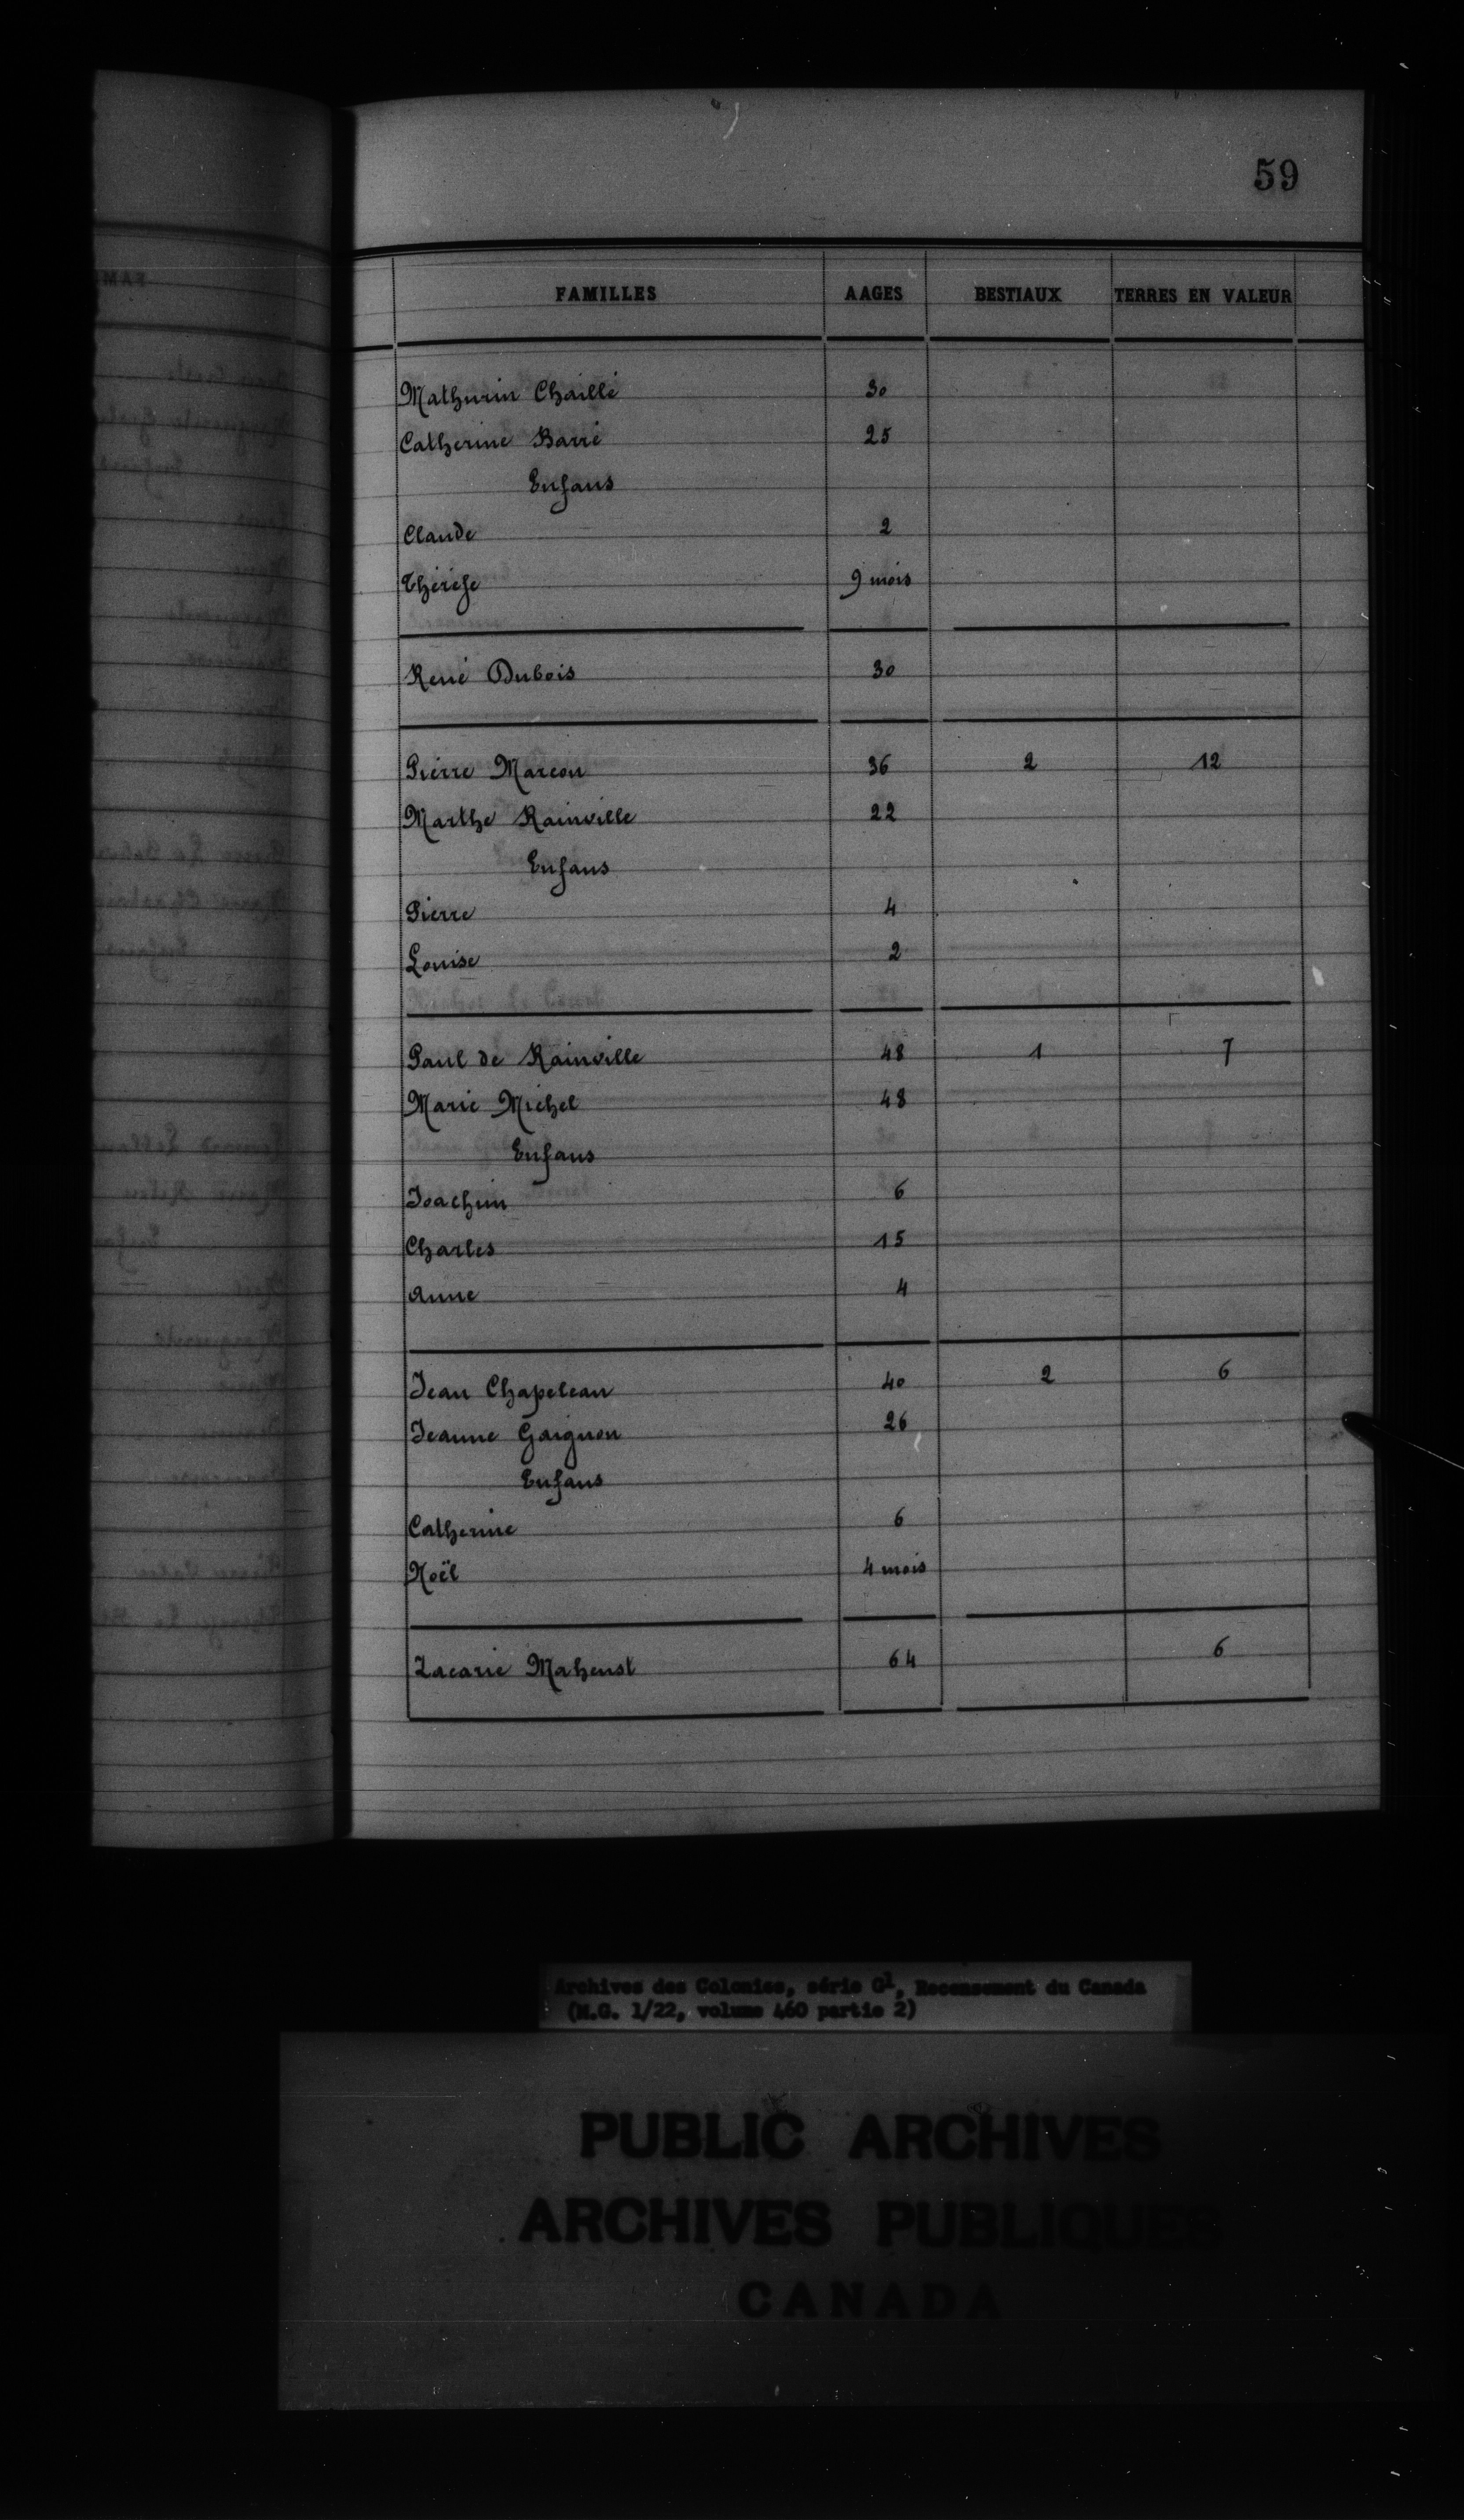 59
FAMILLES AAGES BESTIAUX TERRES EN VALEUR
Mathurin Chaillé 30
Catherine Barré 25
Enfans
Claude 2
Thérése 9 mois
René Dubois 30
Pierre Marcou 36 2 12
Marthe Rainville 22
Enfans
Pierre 4
Louise 2
Paul de Rainville 48 1 7
Marie Michel 48
Enfans
Joachim 6
Charles 15
Anne 4
Jean Chapeleau 40 2 6
Jeanne Gaignon 26
Enfans
Catherine 6
Noël 4 mois
Zacarie Maheust 64 6
Archives des Colonies, série G1, Recensement du Canada
(M.G. 1/22, volume 460 partie 2)
PUBLIC ARCHIVES
ARCHIVES PUBLIQUES
CANADA